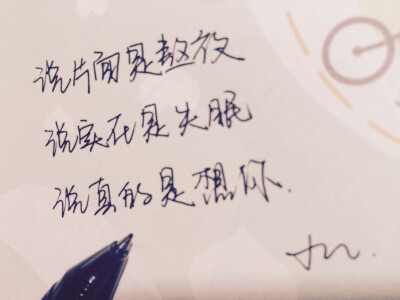 说片面是熬夜
说实在是失眠
说真的是想你.